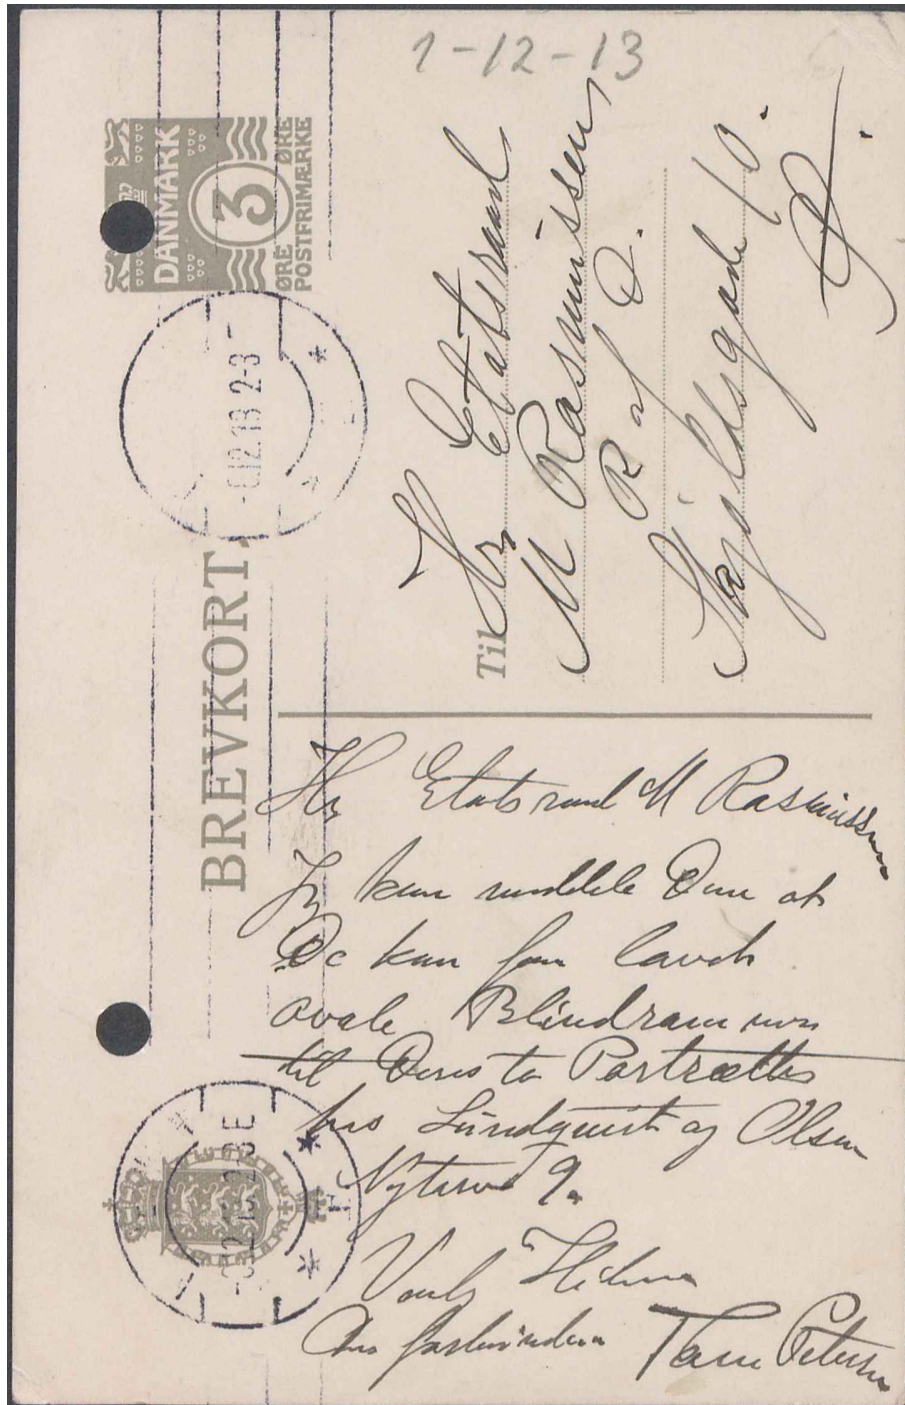 1-12-13
DANMARK
3
ØRE ØRE
POSTFRIMÆRKE
BREVKORT.
12.13 2-3
Til Hr. Etatsraad
M Rasmussen
R af D.
Skjoldsgade 10.
Ø.
Hr Etatsraad M Rasmussen
Jeg kan meddele Dem at
De kan faa lavet
ovale Blindrammer
til Deres to Portrætter
hos Lundquist og Olsen
Nytorv 9.
Venlig Hilsen
Petersen